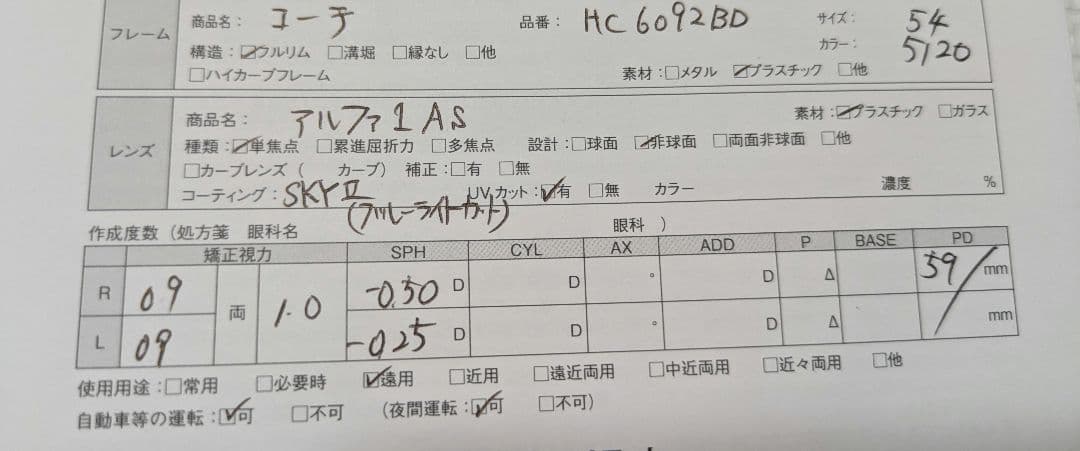 フレーム
商品名： コーチ 品番： HC6092BD サイズ： 54
構造：☑フルリム □溝堀 □縁なし □他 カラー： 5120
□ハイカーブフレーム 素材：□メタル ☑プラスチック □他
レンズ
商品名： アルファ1AS 素材：☑プラスチック □ガラス
種類：☑単焦点 □累進屈折力 □多焦点 設計：□球面 ☑非球面 □両面非球面 □他
□カーブレンズ（ カーブ） 補正：□有 □無
コーティング： SKYⅡ UVカット：☑有 □無 カラー 濃度 %
(ブルーライトカット)
作成度数（処方箋 眼科名 眼科 ）
矯正視力 SPH CYL AX ADD P BASE PD
R 09 両 1.0 -0.50 D D ° D Δ 59 mm
L 09 -025 D D ° D Δ mm
使用用途：□常用 □必要時 ☑遠用 □近用 □遠近両用 □中近両用 □近々両用 □他
自動車等の運転：☑可 □不可 （夜間運転：☑可 □不可）